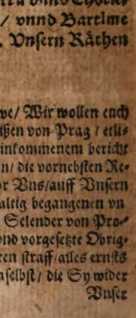 / vnnd Bartlme
Vnsern Räthen
we/ Wir wollen euch
ißen von Prag / etli-
inkommenem bericht
n/ die vornehsten Re-
or Vns/auff Vnsern
altig begangenen vn
Selender von Pro-
ond vorgesetzte Obrig-
en straff/alles ernsts
aselbst/ die Sy wider
Vnser